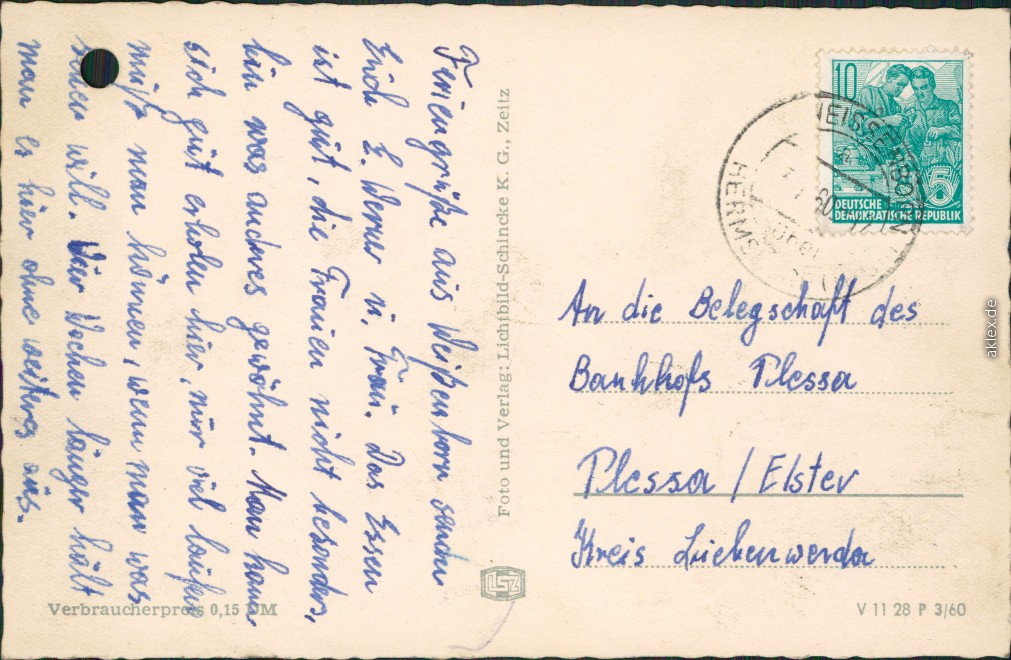 Feriengrüße aus Weißenborn senden
Erich E. Werner u. Frau. Das Essen
ist gut, die Frauen nicht besonders,
bin was anderes gewöhnt. Man kann
sich gut erholen hier, nur viel laufen
muß man können, wenn man was
sehen will. Vier Wochen länger hält
man es hier ohne weiteres aus.
Verbraucherpreis 0,15 DM
Foto und Verlag: Lichtbild-Schincke K. G., Zeitz
LSZ
10
5
DEUTSCHE
DEMOKRATISCHE REPUBLIK
WEISSENBORN
über
HERMSD
60
An die Belegschaft des
Bahnhofs Plessa
Plessa / Elster
Kreis Liebenwerda
V 11 28 P 3/60
aklex.de